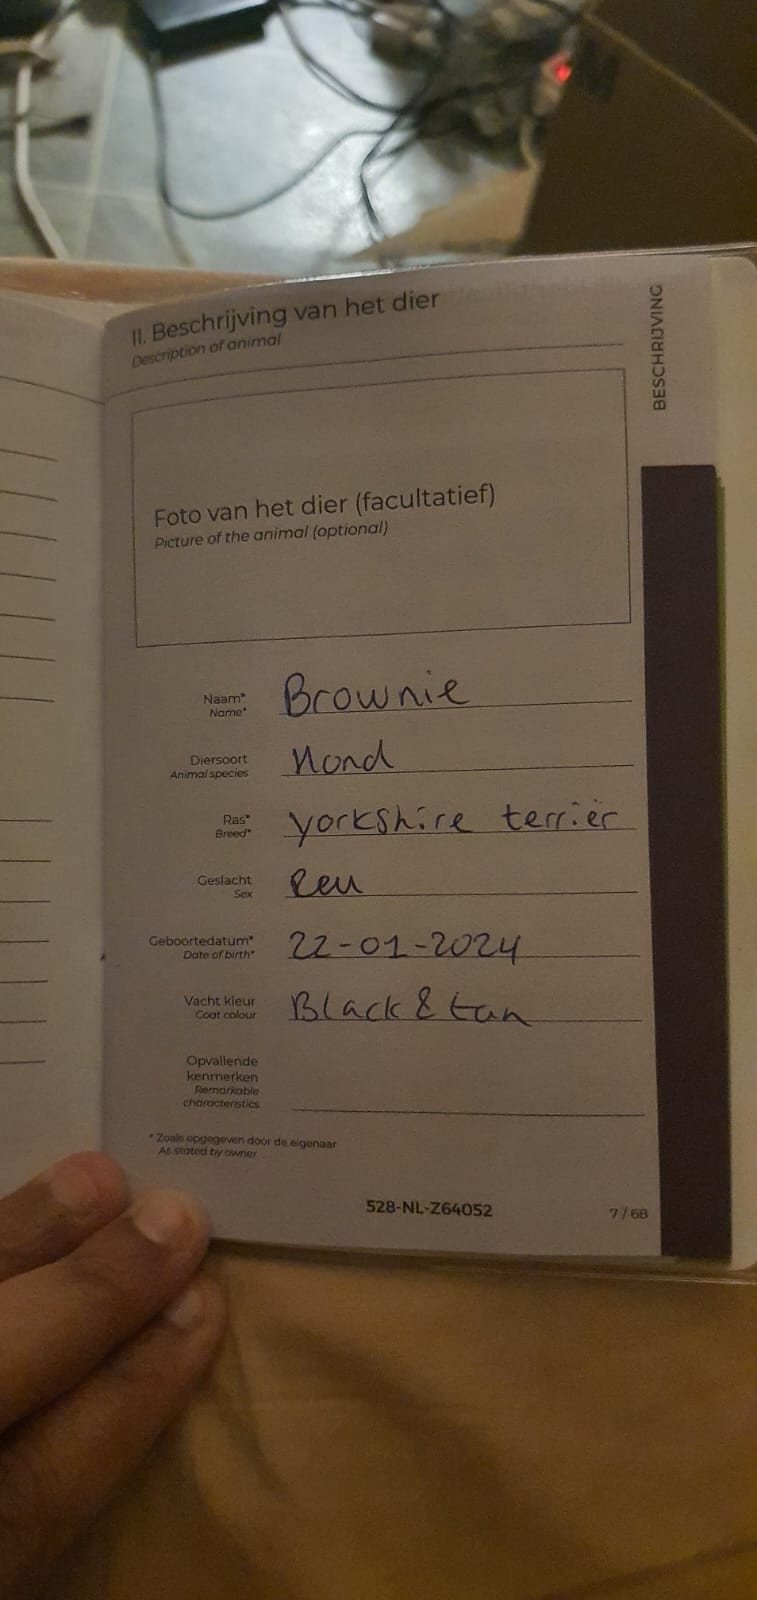 II. Beschrijving van het dier
Description of animal
BESCHRIJVING
Foto van het dier (facultatief)
Picture of the animal (optional)
Naam* Brownie
Name*
Diersoort Hond
Animal species
Ras* yorkshire terriër
Breed*
Geslacht Reu
Sex
Geboortedatum* 22-01-2024
Date of birth*
Vacht kleur Black & tan
Coat colour
Opvallende
kenmerken
Remarkable
characteristics
* Zoals opgegeven door de eigenaar
As stated by owner
528-NL-Z64052
7 / 68